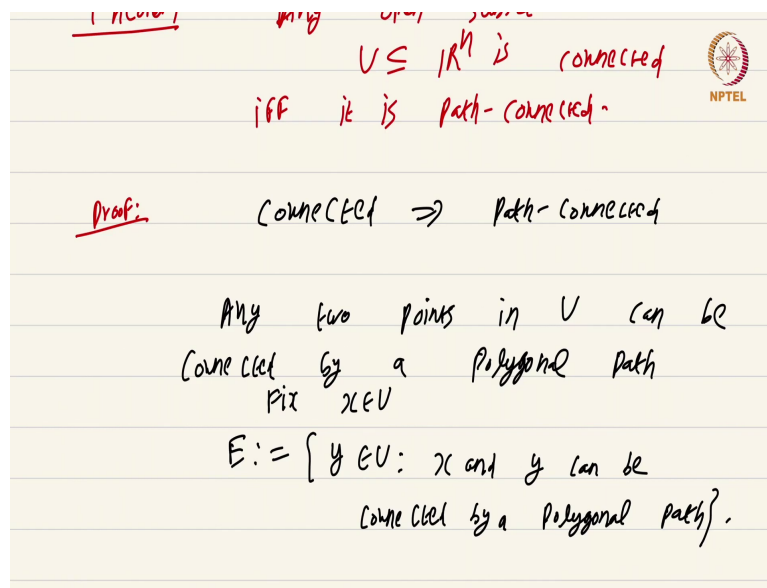 Any
U ⊆ ℝⁿ is connected
NPTEL
iff it is path-connected.
Proof: Connected ⇒ Path-connected
Any two points in U can be
connected by a Polygonal path
Fix x ∈ U
E := { y ∈ U : x and y can be
connected by a Polygonal path}.